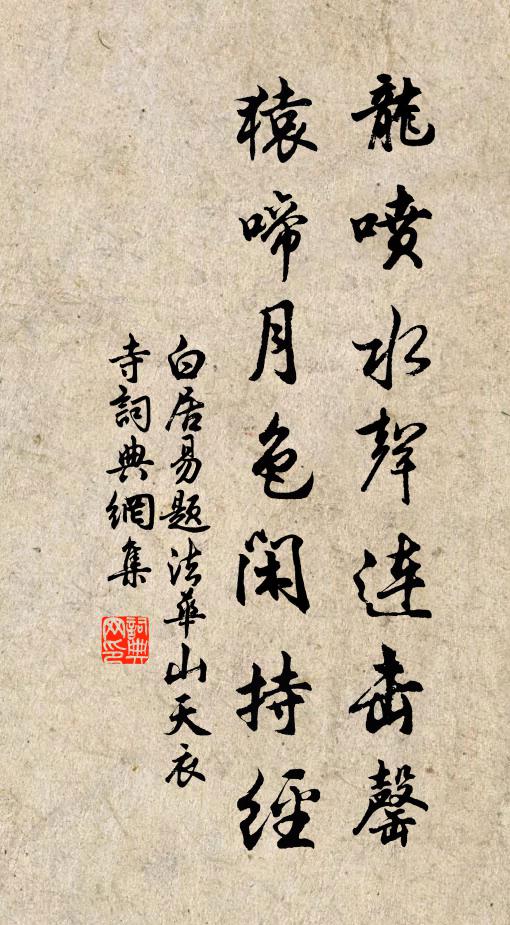 龍噴水聲連击罄
猿啼月色閑持經
白居易題法華山天衣
寺詞典網集
詞典网印